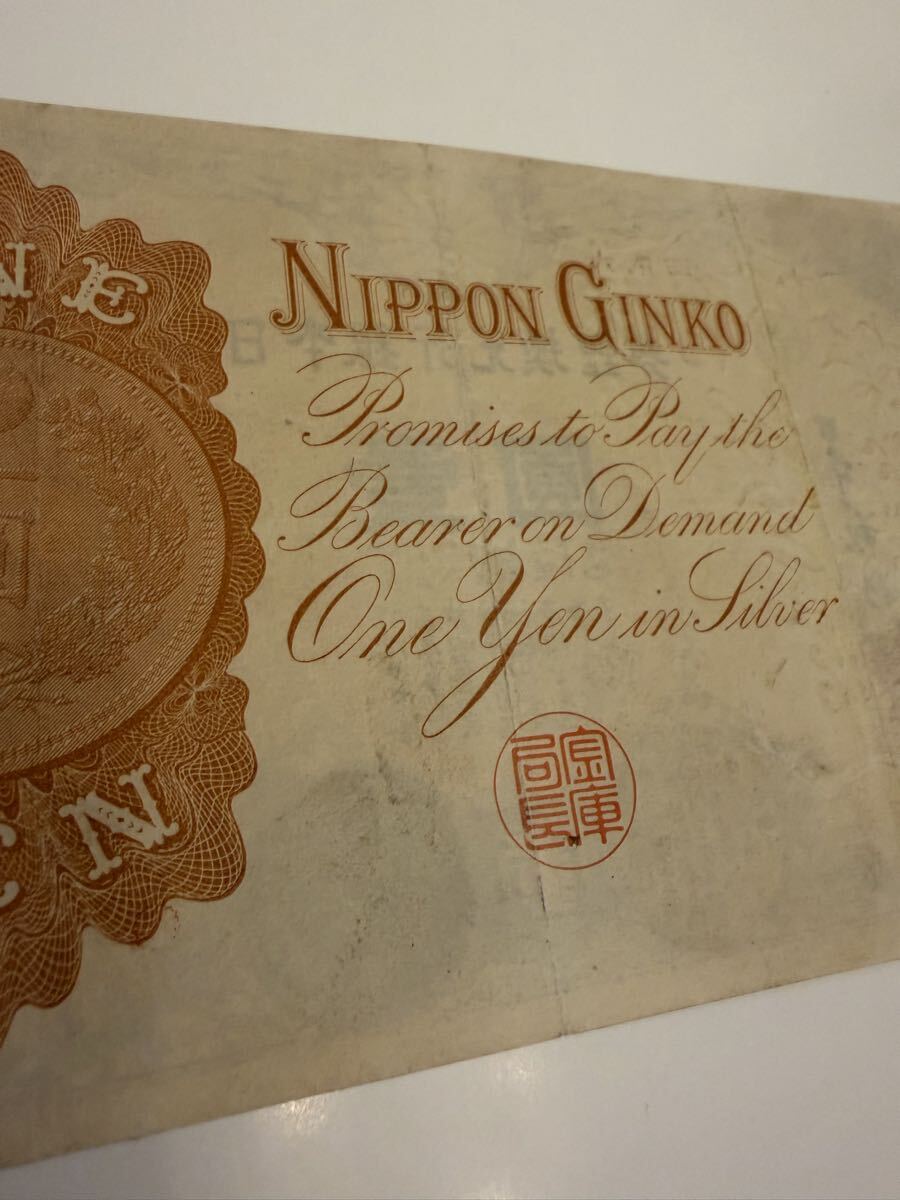 NE
EN
NIPPON GINKO
Promises to Pay the
Bearer on Demand
One Yen in Silver
金庫
局長